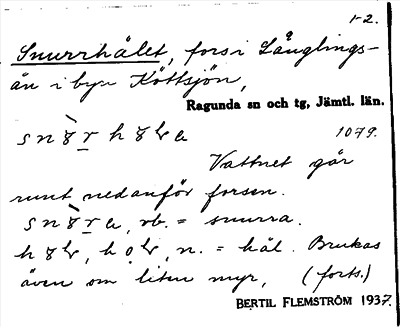 1-2.
Snurrhålet, fors i Långlings-
ån i byn Köttsjön,
Ragunda sn och tg, Jämtl. län.
1079.
Vattnet går
runt nedanför forsen.
vb. = snurra.
n. = hål. Brukas
även om liten myr, (forts.)
BERTIL FLEMSTRÖM 1937.